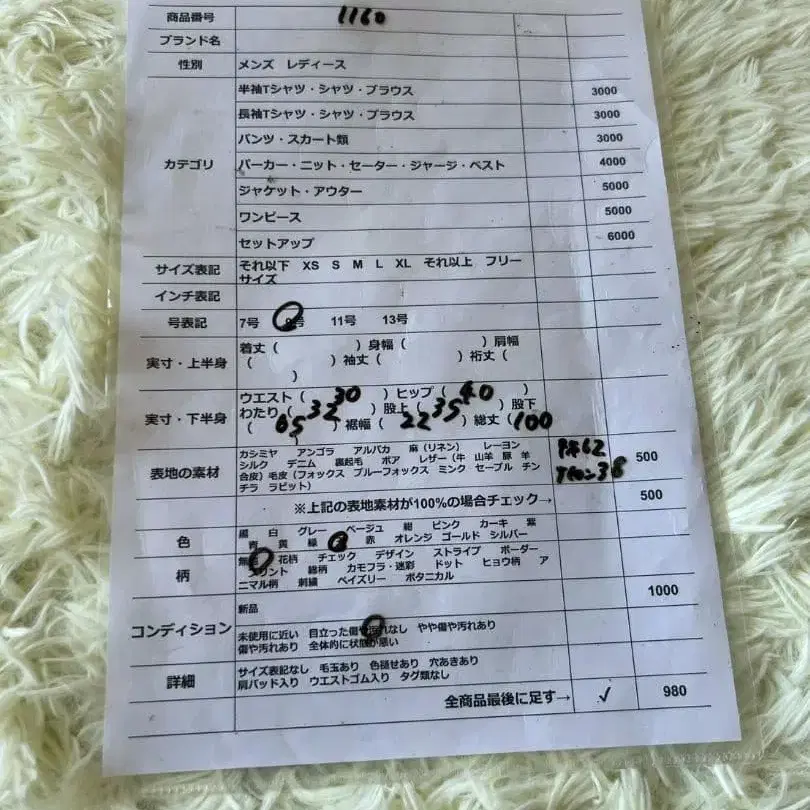 商品番号 1160
ブランド名
性別 メンズ レディース
カテゴリ
半袖Tシャツ・シャツ・ブラウス 3000
長袖Tシャツ・シャツ・ブラウス 3000
パンツ・スカート類 3000
パーカー・ニット・セーター・ジャージ・ベスト 4000
ジャケット・アウター 5000
ワンピース 5000
セットアップ 6000
サイズ表記 それ以下 XS S M L XL それ以上 フリー
サイズ
インチ表記
号表記 7号 号 11号 13号
実寸・上半身 着丈( )身幅( )肩幅
( )袖丈( )裄丈(
)
実寸・下半身 ウエスト( 30 )ヒップ( 40 )
わたり( 32 )股上( 35 )股下
( 65 )裾幅( 22 )総丈(100
)
表地の素材
カシミヤ アンゴラ アルパカ 麻(リネン) レーヨン
シルク デニム 裏起毛 ボア レザー(牛 山羊 豚 羊
合皮)毛皮(フォックス ブルーフォックス ミンク セーブル チン
チラ ラビット) 62 38 500
※上記の表地素材が100%の場合チェック→ 500
色 黒 白 グレー ベージュ 紺 ピンク カーキ 紫
青 黄 緑 赤 オレンジ ゴールド シルバー
柄 無 花柄 チェック デザイン ストライプ ボーダー
プリント 総柄 カモフラ・迷彩 ドット ヒョウ柄 ア
ニマル柄 刺繍 ペイズリー ボタニカル
コンディション 新品 1000
未使用に近い 目立った傷や汚れなし やや傷や汚れあり
傷や汚れあり 全体的に状態が悪い
詳細 サイズ表記なし 毛玉あり 色褪せあり 穴あきあり
肩パッド入り ウエストゴム入り タグ類なし
全商品最後に足す→ ✓ 980